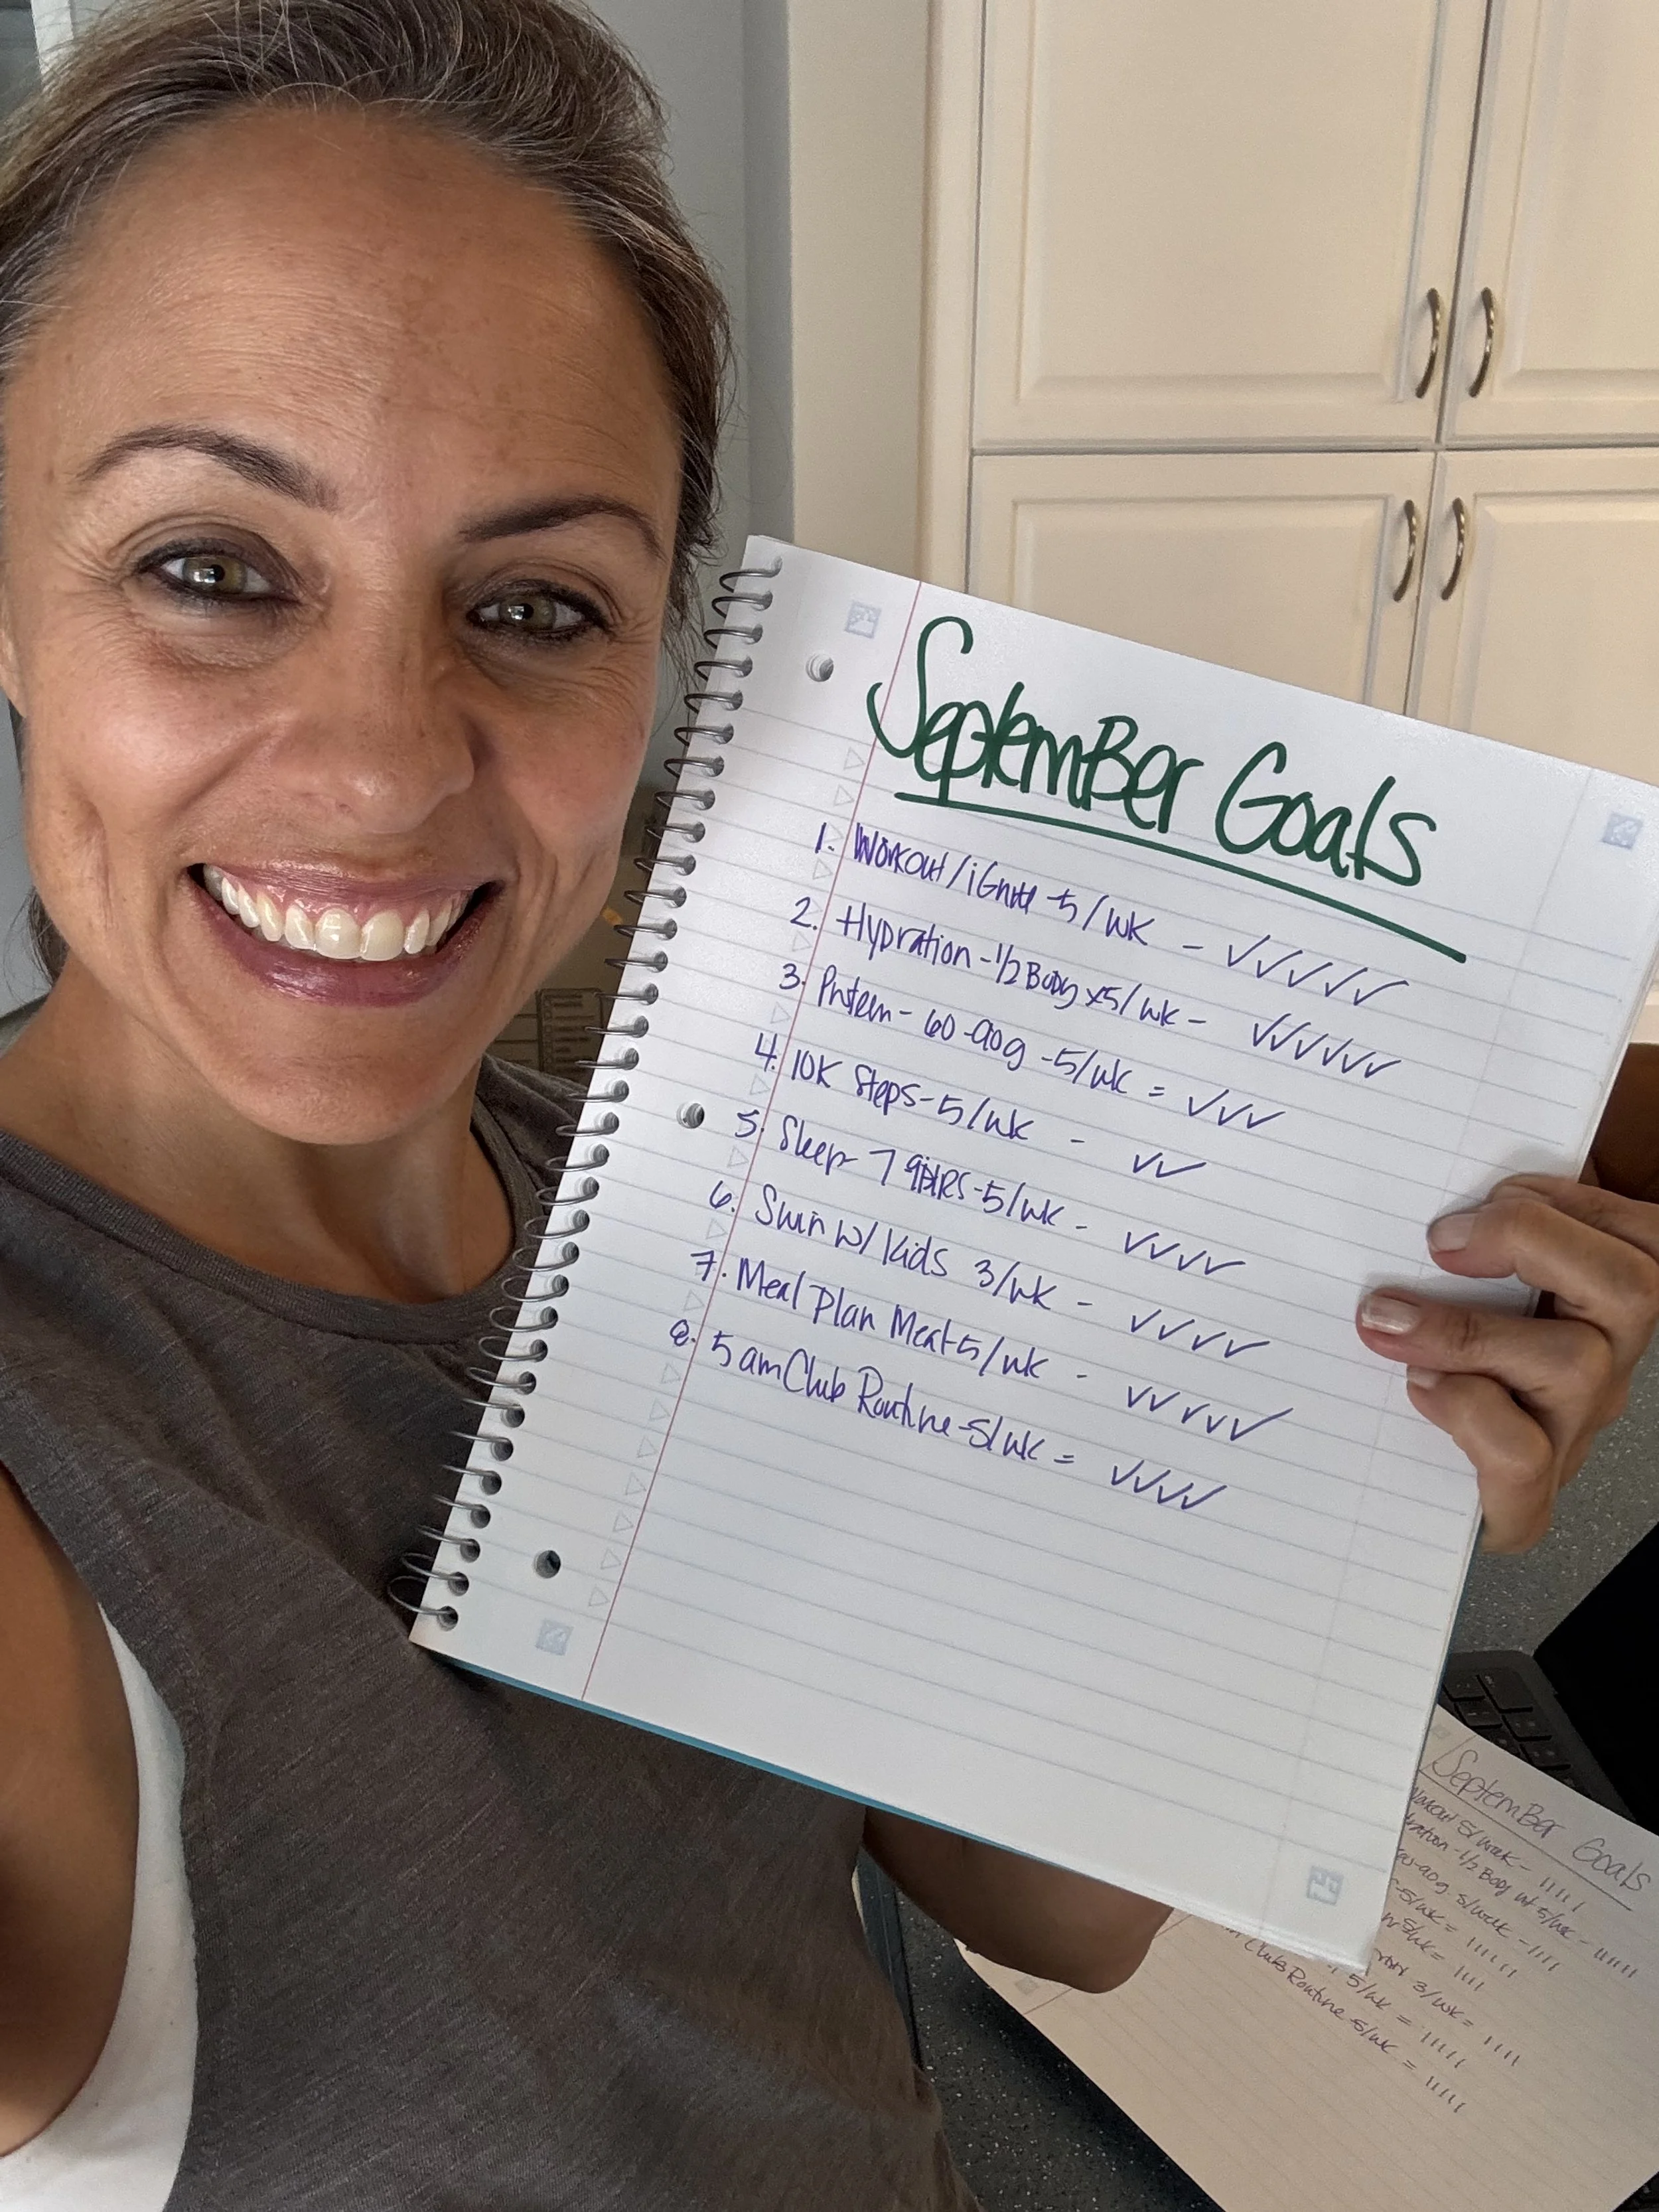 SeptemBer Goals
1. Workout/iGnite -5/wk - ✓✓✓✓✓
2. Hydration - 1/2 Body x5/wk - ✓✓✓✓✓✓
3. Protein - 60-90g -5/wk = ✓✓✓
4. 10K Steps - 5/wk - ✓✓
5. Sleep - 7 HRS - 5/wk - ✓✓✓✓
6. Swim w/ Kids 3/wk - ✓✓✓✓
7. Meal Plan Meat 5/wk - ✓✓✓✓✓
8. 5 am Club Routine - 5/wk = ✓✓✓✓
SeptemBer Goals
Workout 5/week - 11111
1/2 Body wt 5/wk - 111111
-90g 5/week - 1111
-5/wk = 111111
5/wk = 1111
3/wk = 1111
5/wk = 11111
Club Routine - 5/wk = 11111